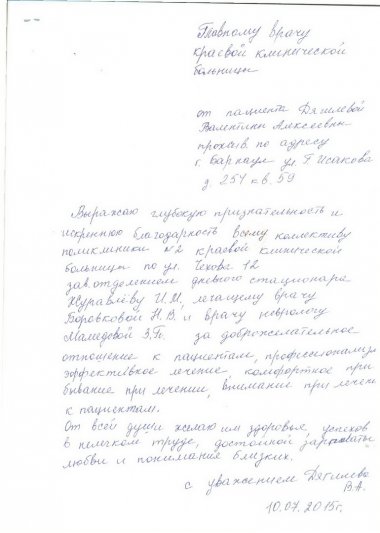 Главному врачу
краевой клинической
больницы
от пациента Дягилевой
Валентины Алексеевны
прожив. по адресу
г. Барнаул ул. Г Исакова
д. 254 кв. 59
Выражаю глубокую признательность и
искреннюю благодарность всему коллективу
поликлиники №2 краевой клинической
больницы по ул. Чехова 12
зав. отделением дневного стационара
Журавлёву И.И, лечащему врачу
Боровковой Н.В и врачу неврологу
Мамедовой З.Г. за доброжелательное
отношение к пациентам, профессионализм
эффективное лечение, комфортное пре
бывание при лечении, внимание при лечен
к пациентам.
От всей души желаю им здоровья, успехов
в нелегком труде, достойной зарплаты
любви и понимания близких.
с уважением Дягилева
В.А.
10.07.2015г.